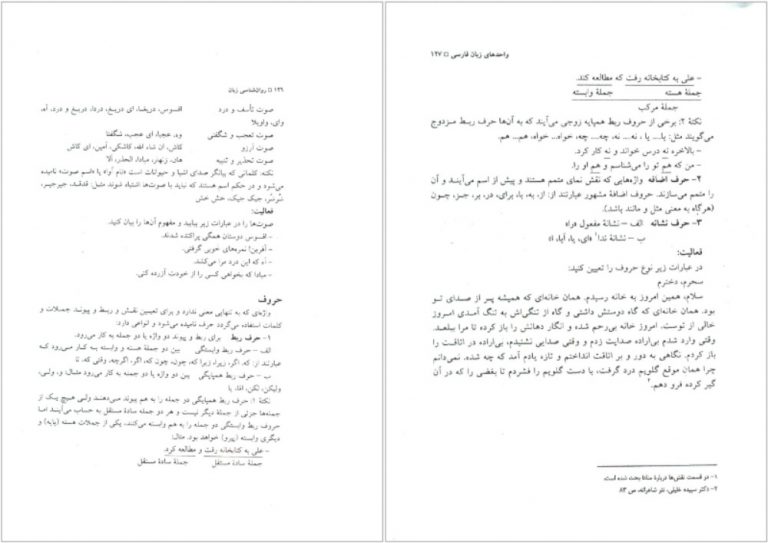 ۱۲۶ □ روان‌شناسی زبان
صوت تأسف و درد افسوس، دریغا، ای دریغ، دردا، دریغ و درد، آه،
وای، واویلا
صوت تعجب و شگفتی وه، عجبا، ای عجب، شگفتا
صوت آرزو کاش، ان شاء الله، کاشکی، آمین، ای کاش
صوت تحذیر و تنبیه های، زنهار، مبادا، الحذر، الا
نکته: کلماتی که بیانگر صدای اشیا و حیوانات است «نام آوا» یا «اسم صوت» نامیده
می‌شود و در حکم اسم هستند که نباید با صوت‌ها اشتباه شوند مثل: قدقد، جیرجیر،
شُرشُر، جیک جیک، خش خش
فعالیت:
صوت‌ها را در عبارات زیر بیابید و مفهوم آن‌ها را بیان کنید.
- افسوس دوستان همگی پراکنده شدند.
- آفرین! نمره‌های خوبی گرفتی.
- آه که این درد مرا می‌کشد.
- مبادا که بخواهی کسی را از خودت آزرده کنی.
حروف
واژه‌ای که به تنهایی معنی ندارد و برای تعیین نقش و ربط و پیوند جملات و
کلمات استفاده می‌گردد حرف نامیده می‌شود و انواعی دارد:
۱- حرف ربط برای ربط و پیوند دو واژه یا دو جمله به کار می‌رود.
الف - حرف ربط وابستگی بین دو جملهٔ هسته و وابسته به کار می‌رود که
عبارتند از: که، اگر، زیرا، زیرا که، چون، چون که، اگر، اگرچه، وقتی که، تا
ب - حرف ربط همپایگی بین دو واژه یا دو جمله به کار می‌رود مثال: و، ولی،
ولیکن، لکن، امّا، یا
نکتهٔ ۱: حرف ربط همپایگی دو جمله را به هم پیوند می‌دهند ولی هیچ یک از
جمله‌ها جزئی از جملهٔ دیگر نیست و هر دو جمله سادهٔ مستقل به حساب می‌آیند اما
حروف ربط وابستگی دو جمله را به هم وابسته می‌کنند، یکی از جملات هسته (پایه) و
دیگری وابسته (پیرو) خواهد بود. مثال:
- علی به کتابخانه رفت و مطالعه کرد.
جملهٔ سادهٔ مستقل جملهٔ سادهٔ مستقل
واحدهای زبان فارسی □ ۱۲۷
- علی به کتابخانه رفت که مطالعه کند.
جملهٔ هسته جملهٔ وابسته
جملهٔ مرکب
نکتهٔ ۲: برخی از حروف ربط همپایه زوجی می‌آیند که به آن‌ها حرف ربط مزدوج
می‌گویند مثل: یا... یا ، نه... نه، چه... چه، خواه... خواه، هم... هم.
- بالاخره نه درس خواند و نه کار کرد.
- من که هم تو را می‌شناسم و هم او را.
۲- حرف اضافه واژه‌هایی که نقش نمای متمم هستند و پیش از اسم می‌آیند و آن
را متمم می‌سازند. حروف اضافهٔ مشهور عبارتند از: از، به، با، برای، در، بر، جز، چون
(هرگاه به معنی مثل و مانند باشد).
۳- حرف نشانه الف - نشانهٔ مفعول «را»
ب - نشانهٔ ندا۱ «ای، یا، آیا، ا»
فعالیت:
در عبارات زیر نوع حروف را تعیین کنید:
سحرم، دخترم
سلام، همین امروز به خانه رسیدم. همان خانه‌ای که همیشه پر از صدای تو
بود. همان خانه‌ای که گاه دوستش داشتی و گاه از تنگی‌اش به تنگ آمدی امروز
خالی از توست. امروز خانه بی‌رحم شده و انگار دهانش را باز کرده تا مرا ببلعد.
وقتی وارد شدم بی‌اراده صدایت زدم و وقتی صدایی نشنیدم، بی‌اراده در اتاقت را
باز کردم. نگاهی به دور و بر اتاقت انداختم و تازه یادم آمد که چه شده. نمی‌دانم
چرا همان موقع گلویم درد گرفت، یا دست گلویم را فشردم تا بغضی را که در آن
گیر کرده فرو دهم.۲
۱- در قسمت نقش‌ها دربارهٔ منادا بحث شده است.
۲- دکتر سپیده خلیلی، نثر شاعرانه، ص ۸۳